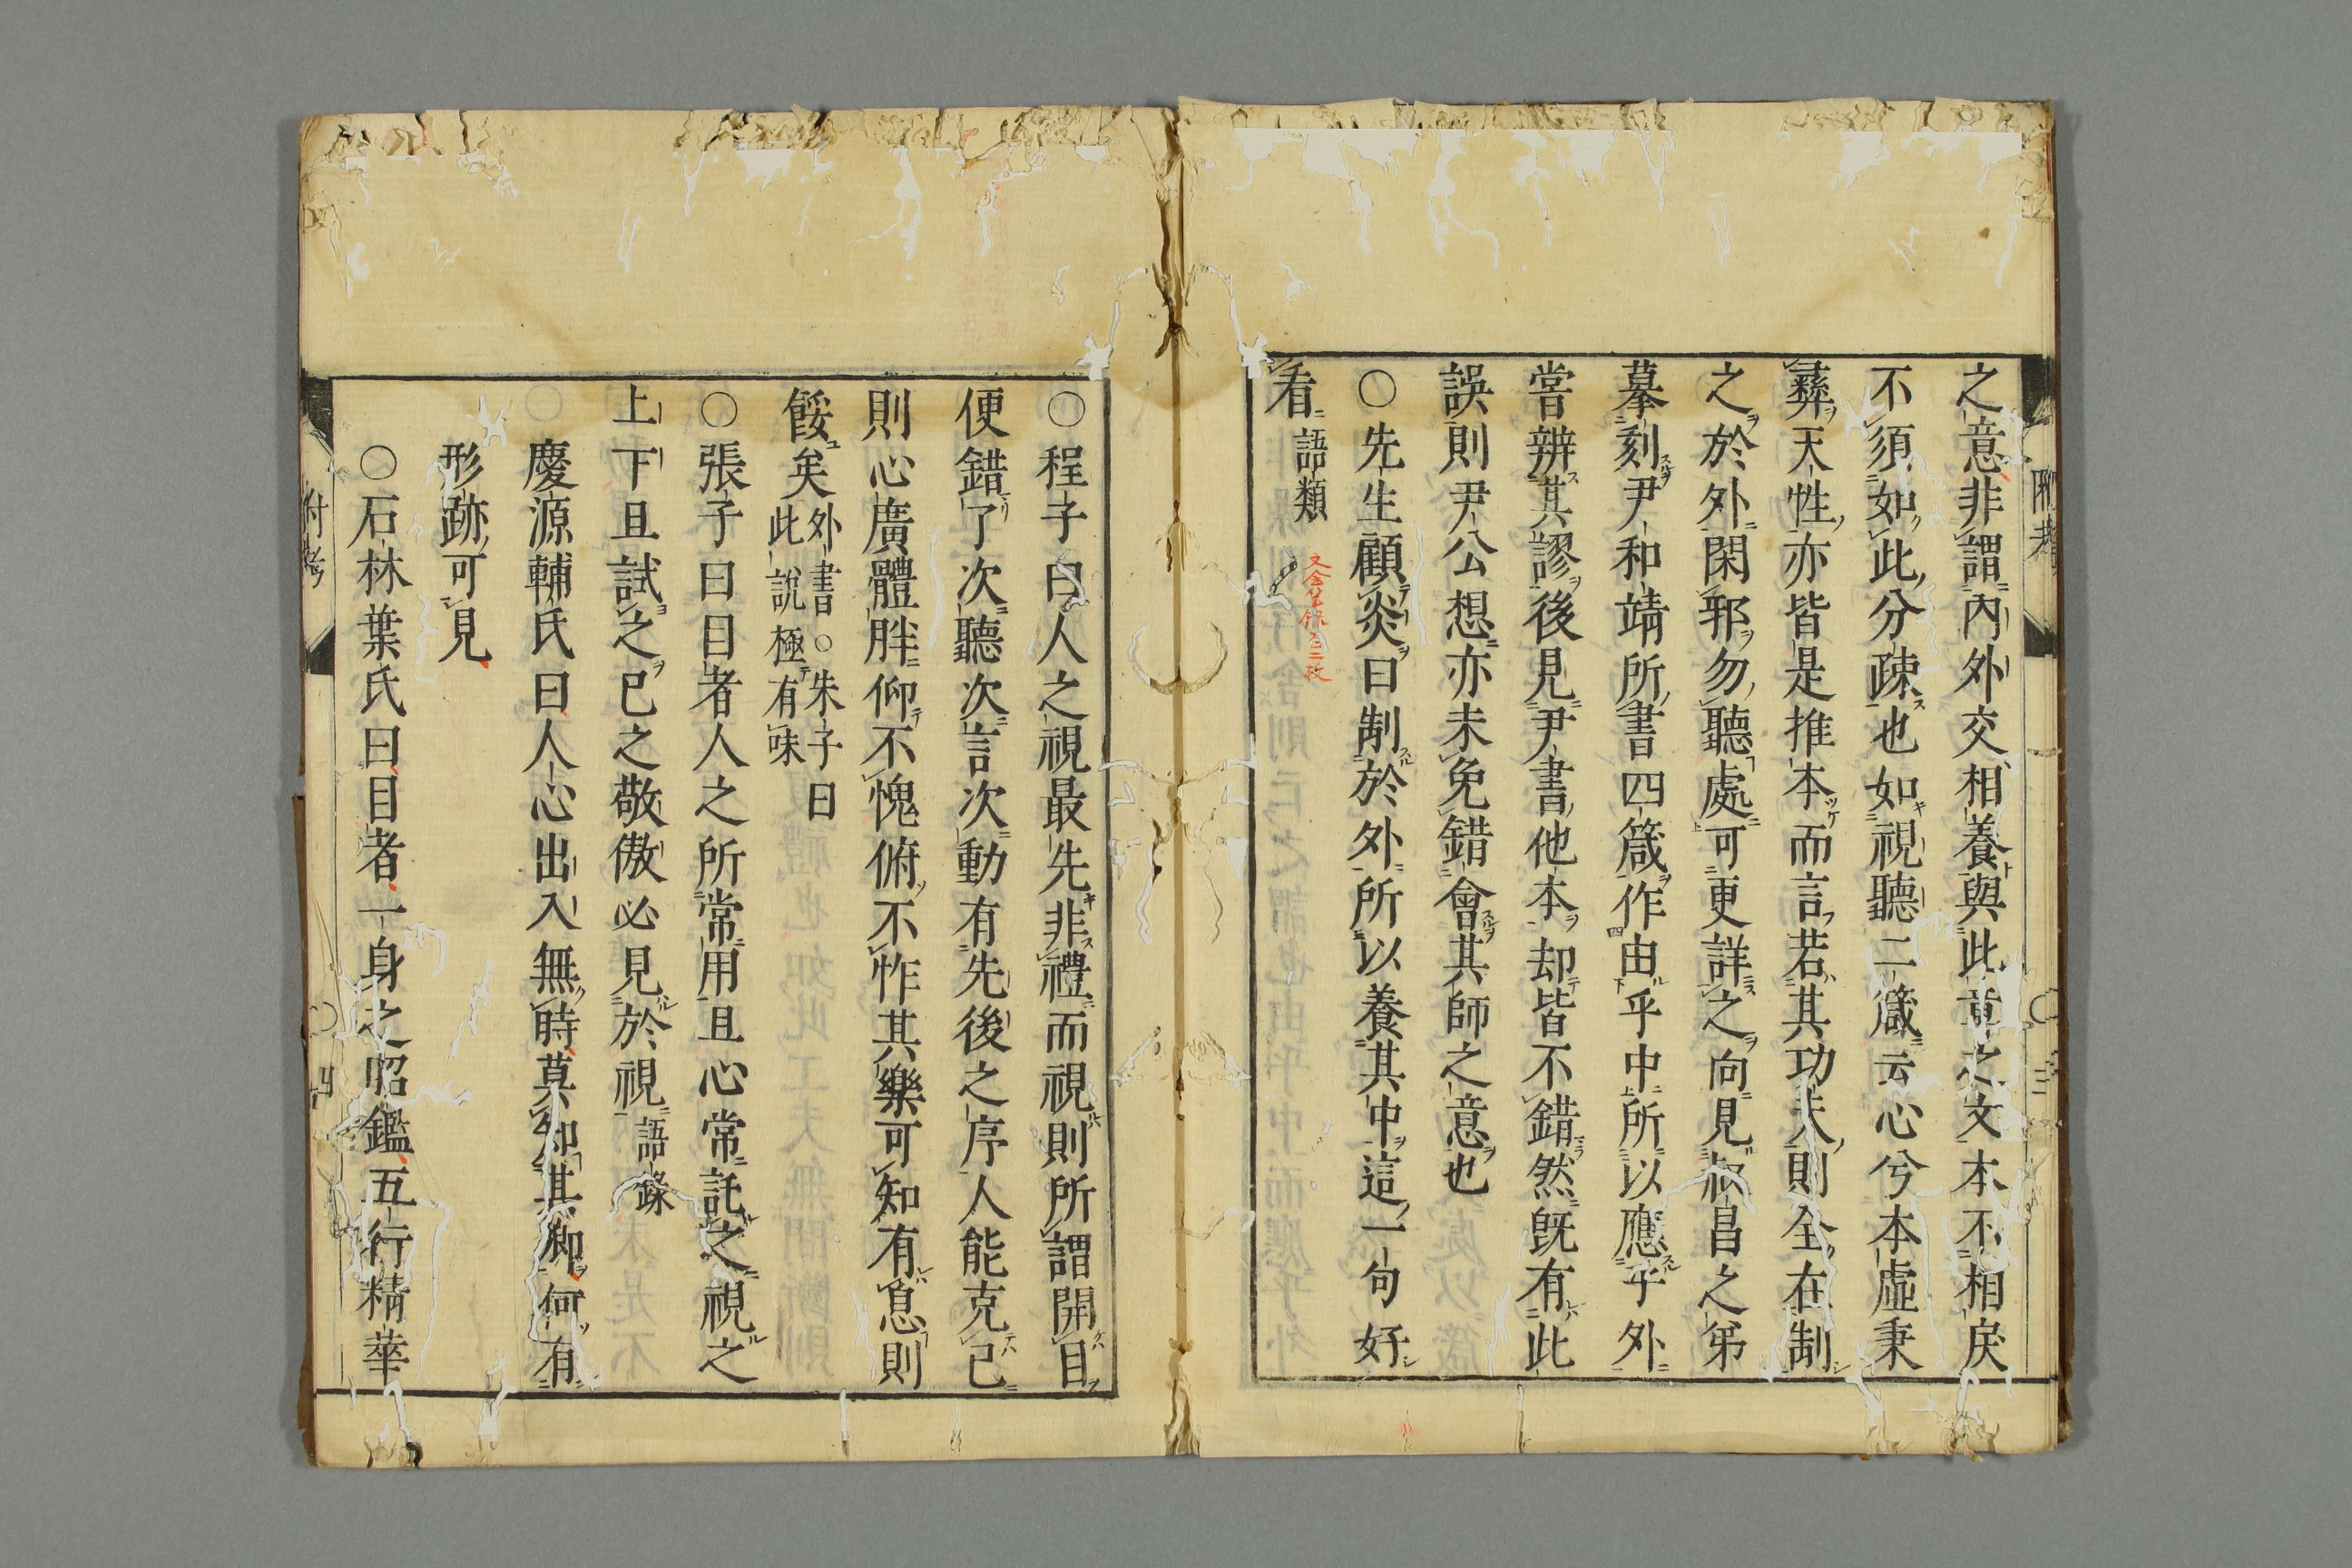 之意非謂內外交相養與此章之文本不相戾
不須如此分疎也如視聽二箴云心兮本虛秉
彝天性亦皆是推本而言若其功夫則全在制
之於外閑邪勿聽處可更詳之向見叔昌之弟
摹刻尹和靖所書四箴作由乎中所以應乎外
嘗辨其謬後見尹書他本却皆不錯然旣有此
誤則尹公想亦未免錯會其師之意也
○先生顧炎曰制於外所以養其中這一句好
看語類
○程子曰人之視最先非禮而視則所謂開目
便錯了次聽次言次動有先後之序人能克己
則心廣體胖仰不愧俯不怍其樂可知有息則
餒矣外書○朱子曰
此說極有味
○張子曰目者人之所常用且心常託之視之
上下且試之己之敬傲必見於視語錄
慶源輔氏曰人心出入無時莫知其鄉何有
形跡可見
○石林葉氏曰目者一身之昭鑑五行精華
附考
四